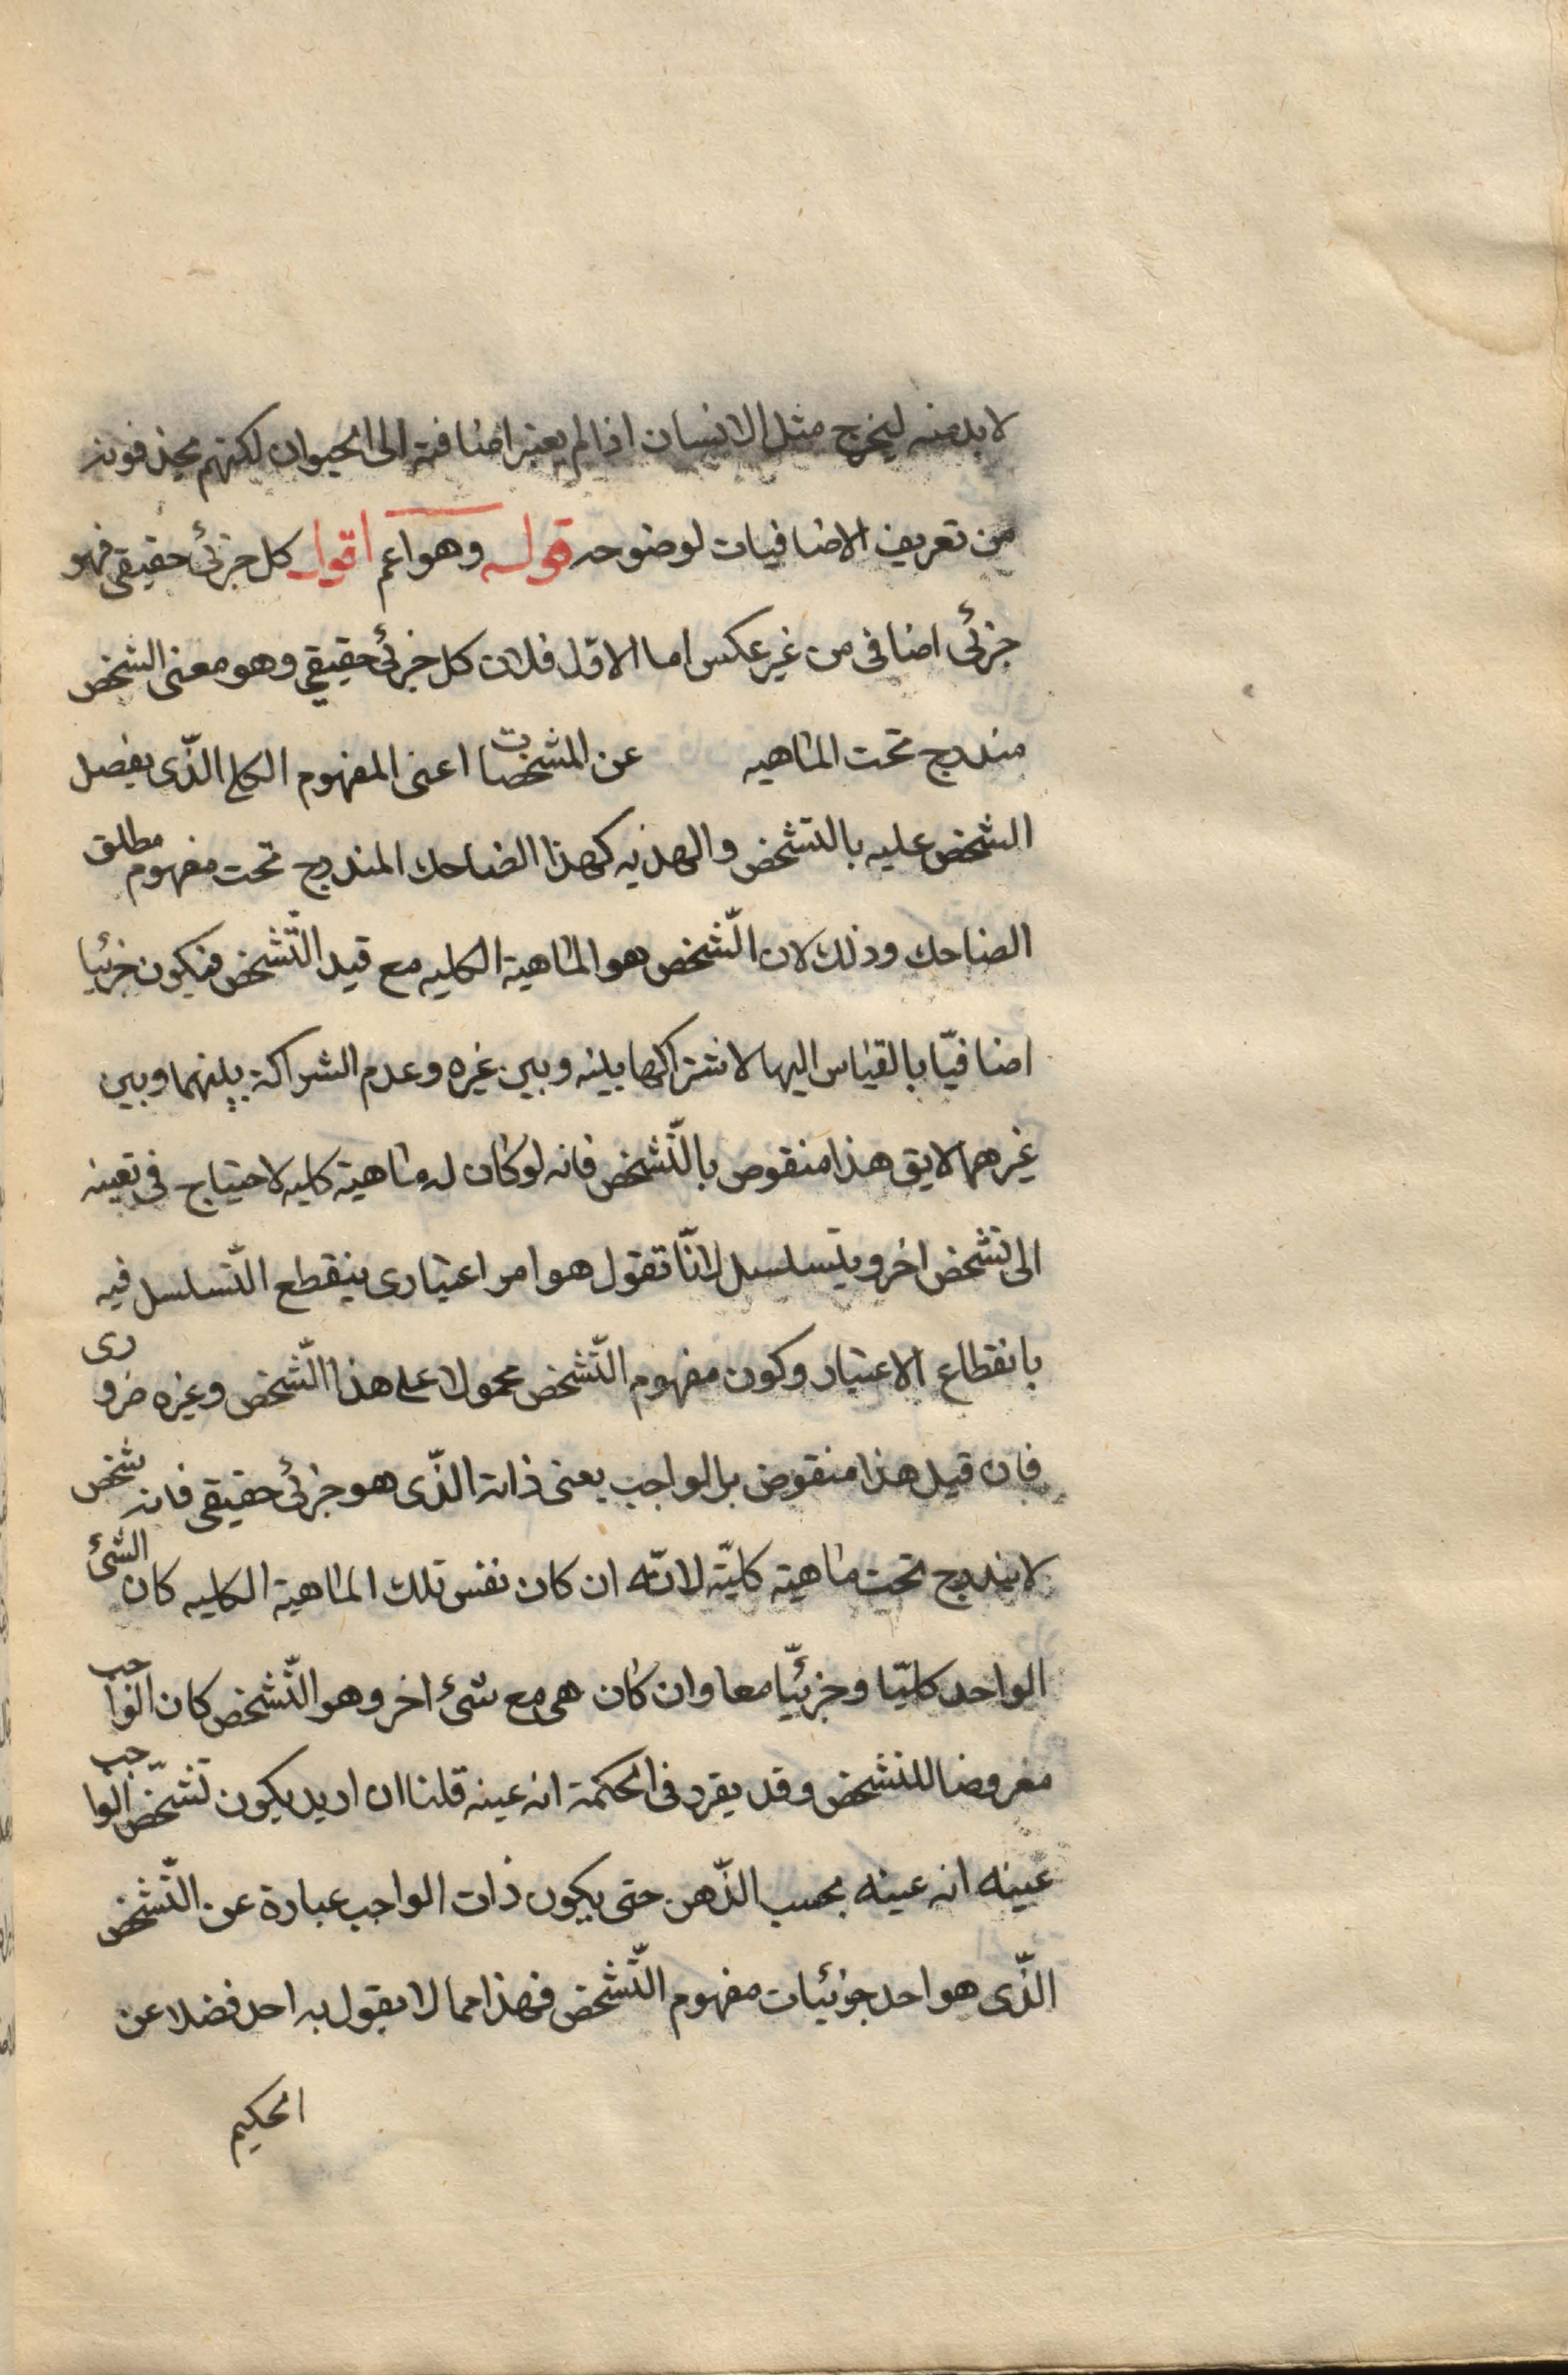 لا بد منه ليخرج مثل الانسان اذا لم يعتبر اضافته الى الحيوان لكنهم يحذفونه
من تعريف الاضافيات لوضوحه قوله وهو اعم اقول كل جزئى حقيقى فهو
جزئى اضافى من غير عكس اما الاول فلان كل جزئى حقيقى وهو معنى الشخص
مندرج تحت الماهيه عن المشخصات اعنى المفهوم الكلى الذّى يفصل
الشخص عليه بالتشخص والهذيه كهذا الضاحك المندرج تحت مفهوم مطلق
الضاحك وذلك لان الشّخص هو الماهية الكليه مع قيد التّشخص فيكون جزئيا
اضافيّا بالقياس اليها لاشتراكها بينه وبين غيره وعدم الشراكة بينهما وبين
غيرهما لايق هذا منقوص بالتّشخص فانه لو كان له ماهية كليه لاحتياج فى تعينه
الى تشخص اخر ويتسلسل لانّا نقول هو امر اعتبارى ينقطع التّسلسل فيه
بانقطاع الاعتبار وكون مفهوم التّشخص محمولا على هذا التّشخص وغيره ضرورى
فان قيل هذا منقوض بالواجب يعنى ذاته الذّى هو جزئى حقيقى فانه شخص
لا يندرج تحت ماهية كليّة لانّه ان كان نفس تلك الماهية الكليه كان الشئ
الواحد كليّا وجزئيّا معا وان كان هى مع شئ اخر وهو التّشخص كان الواجب
معروضا للتشخص وقد يقرر فى الحكمة انه عينه قلنا ان اريد بكون تشخّص الواجب
عينه انه عينه بحسب الذّهن حتى يكون ذات الواجب عبارة عن التّشخص
الذّى هو احد جزئيات مفهوم التّشخص فهذا مما لا يقول به احد فضلا عن
الحكيم